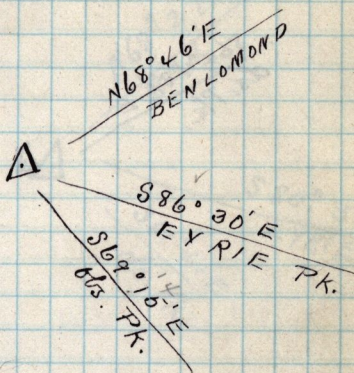 N68°46'E
BENLOMOND
S86°30'E
EYRIE PK.
S69°15'E
Obs. PK.